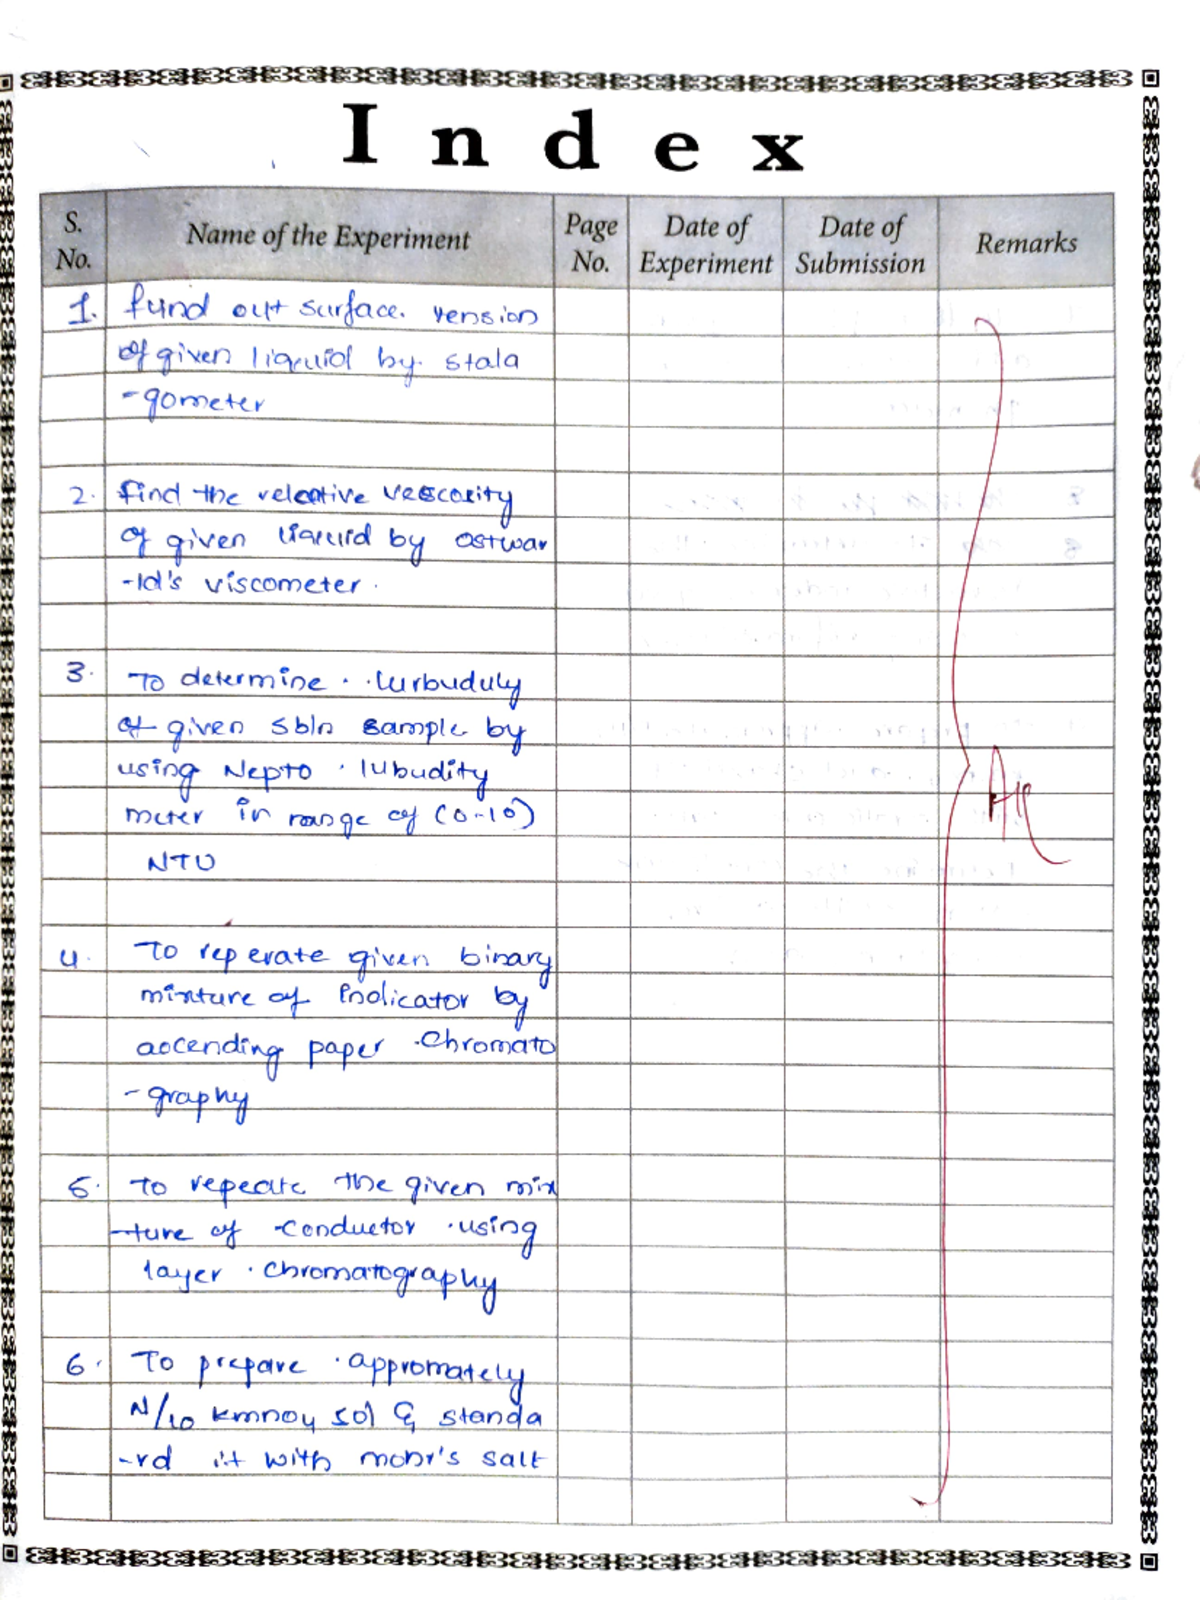 Index
S. No. Name of the Experiment Page No. Date of Experiment Date of Submission Remarks
1. fund out surface. tension
of given liquid by. stala
-gometer
2. find the releative vescosity
of given liquid by ostwar
-ld's viscometer.
3. To determine . . turbuduly
of given sbln sample by
using Nepto . tubudity
meter in range of (0-10)
NTU
4. To reperate given binary
mixture of Indicator by
ascending paper .Chromato
-graphy
5. To repeate the given mix
-ture of -conductor .using
layer . chromatography
6. To prepare .appromately
N/10 kmno4 sol & standa
-rd it with mohr's salt